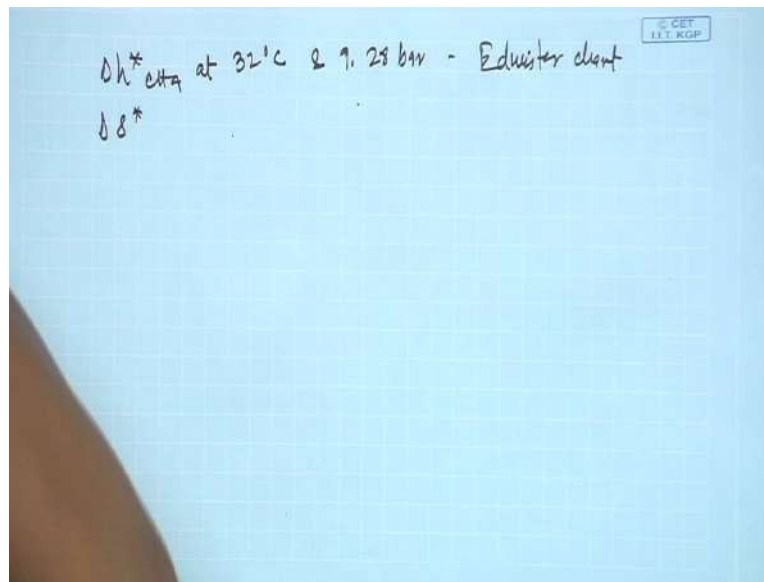 © CET
I.I.T. KGP
Δh*CH4 at 32°C & 9.28 bar - Edmister chart
Δs*